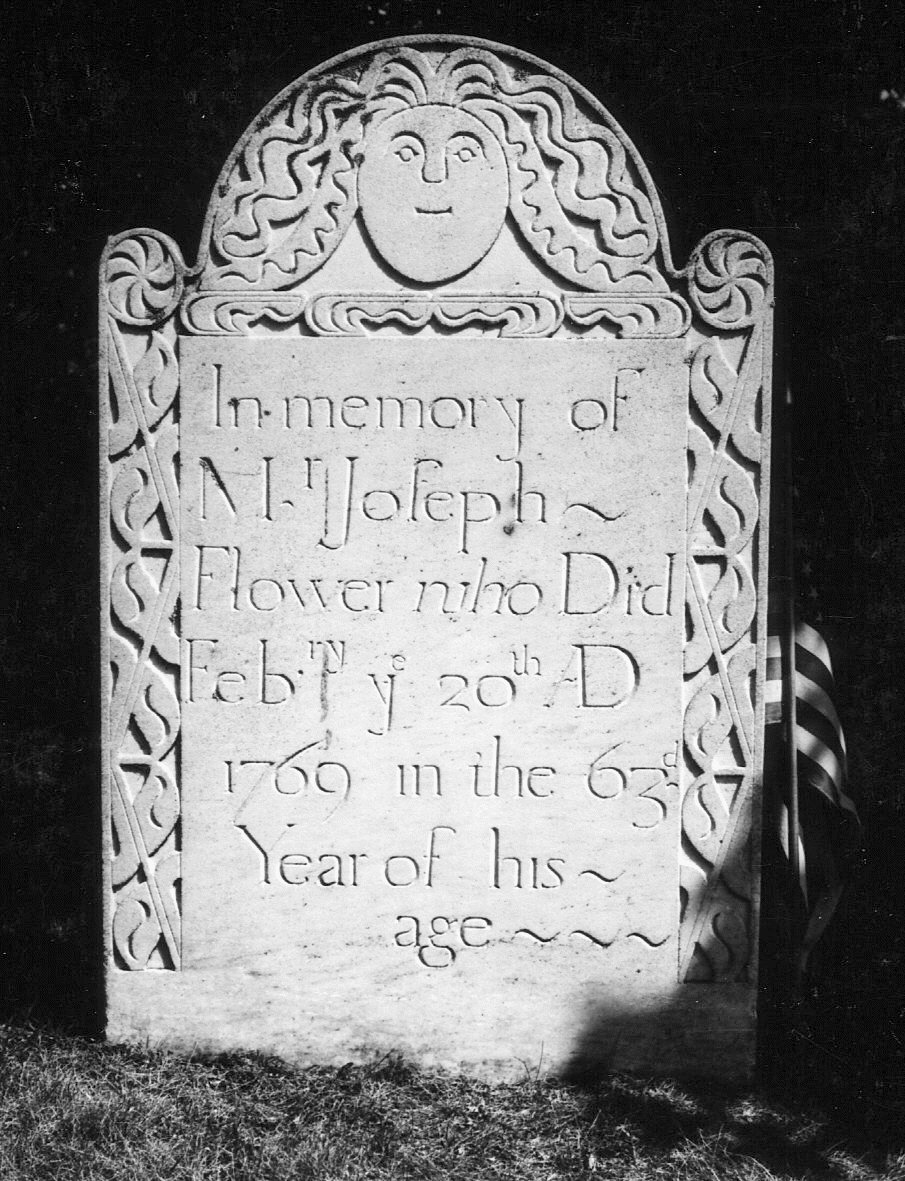 In memory of
Mr Joſeph ~
Flower who Did
Feb.ry ye 20th AD
1769 in the 63d
Year of his ~
age ~ ~ ~